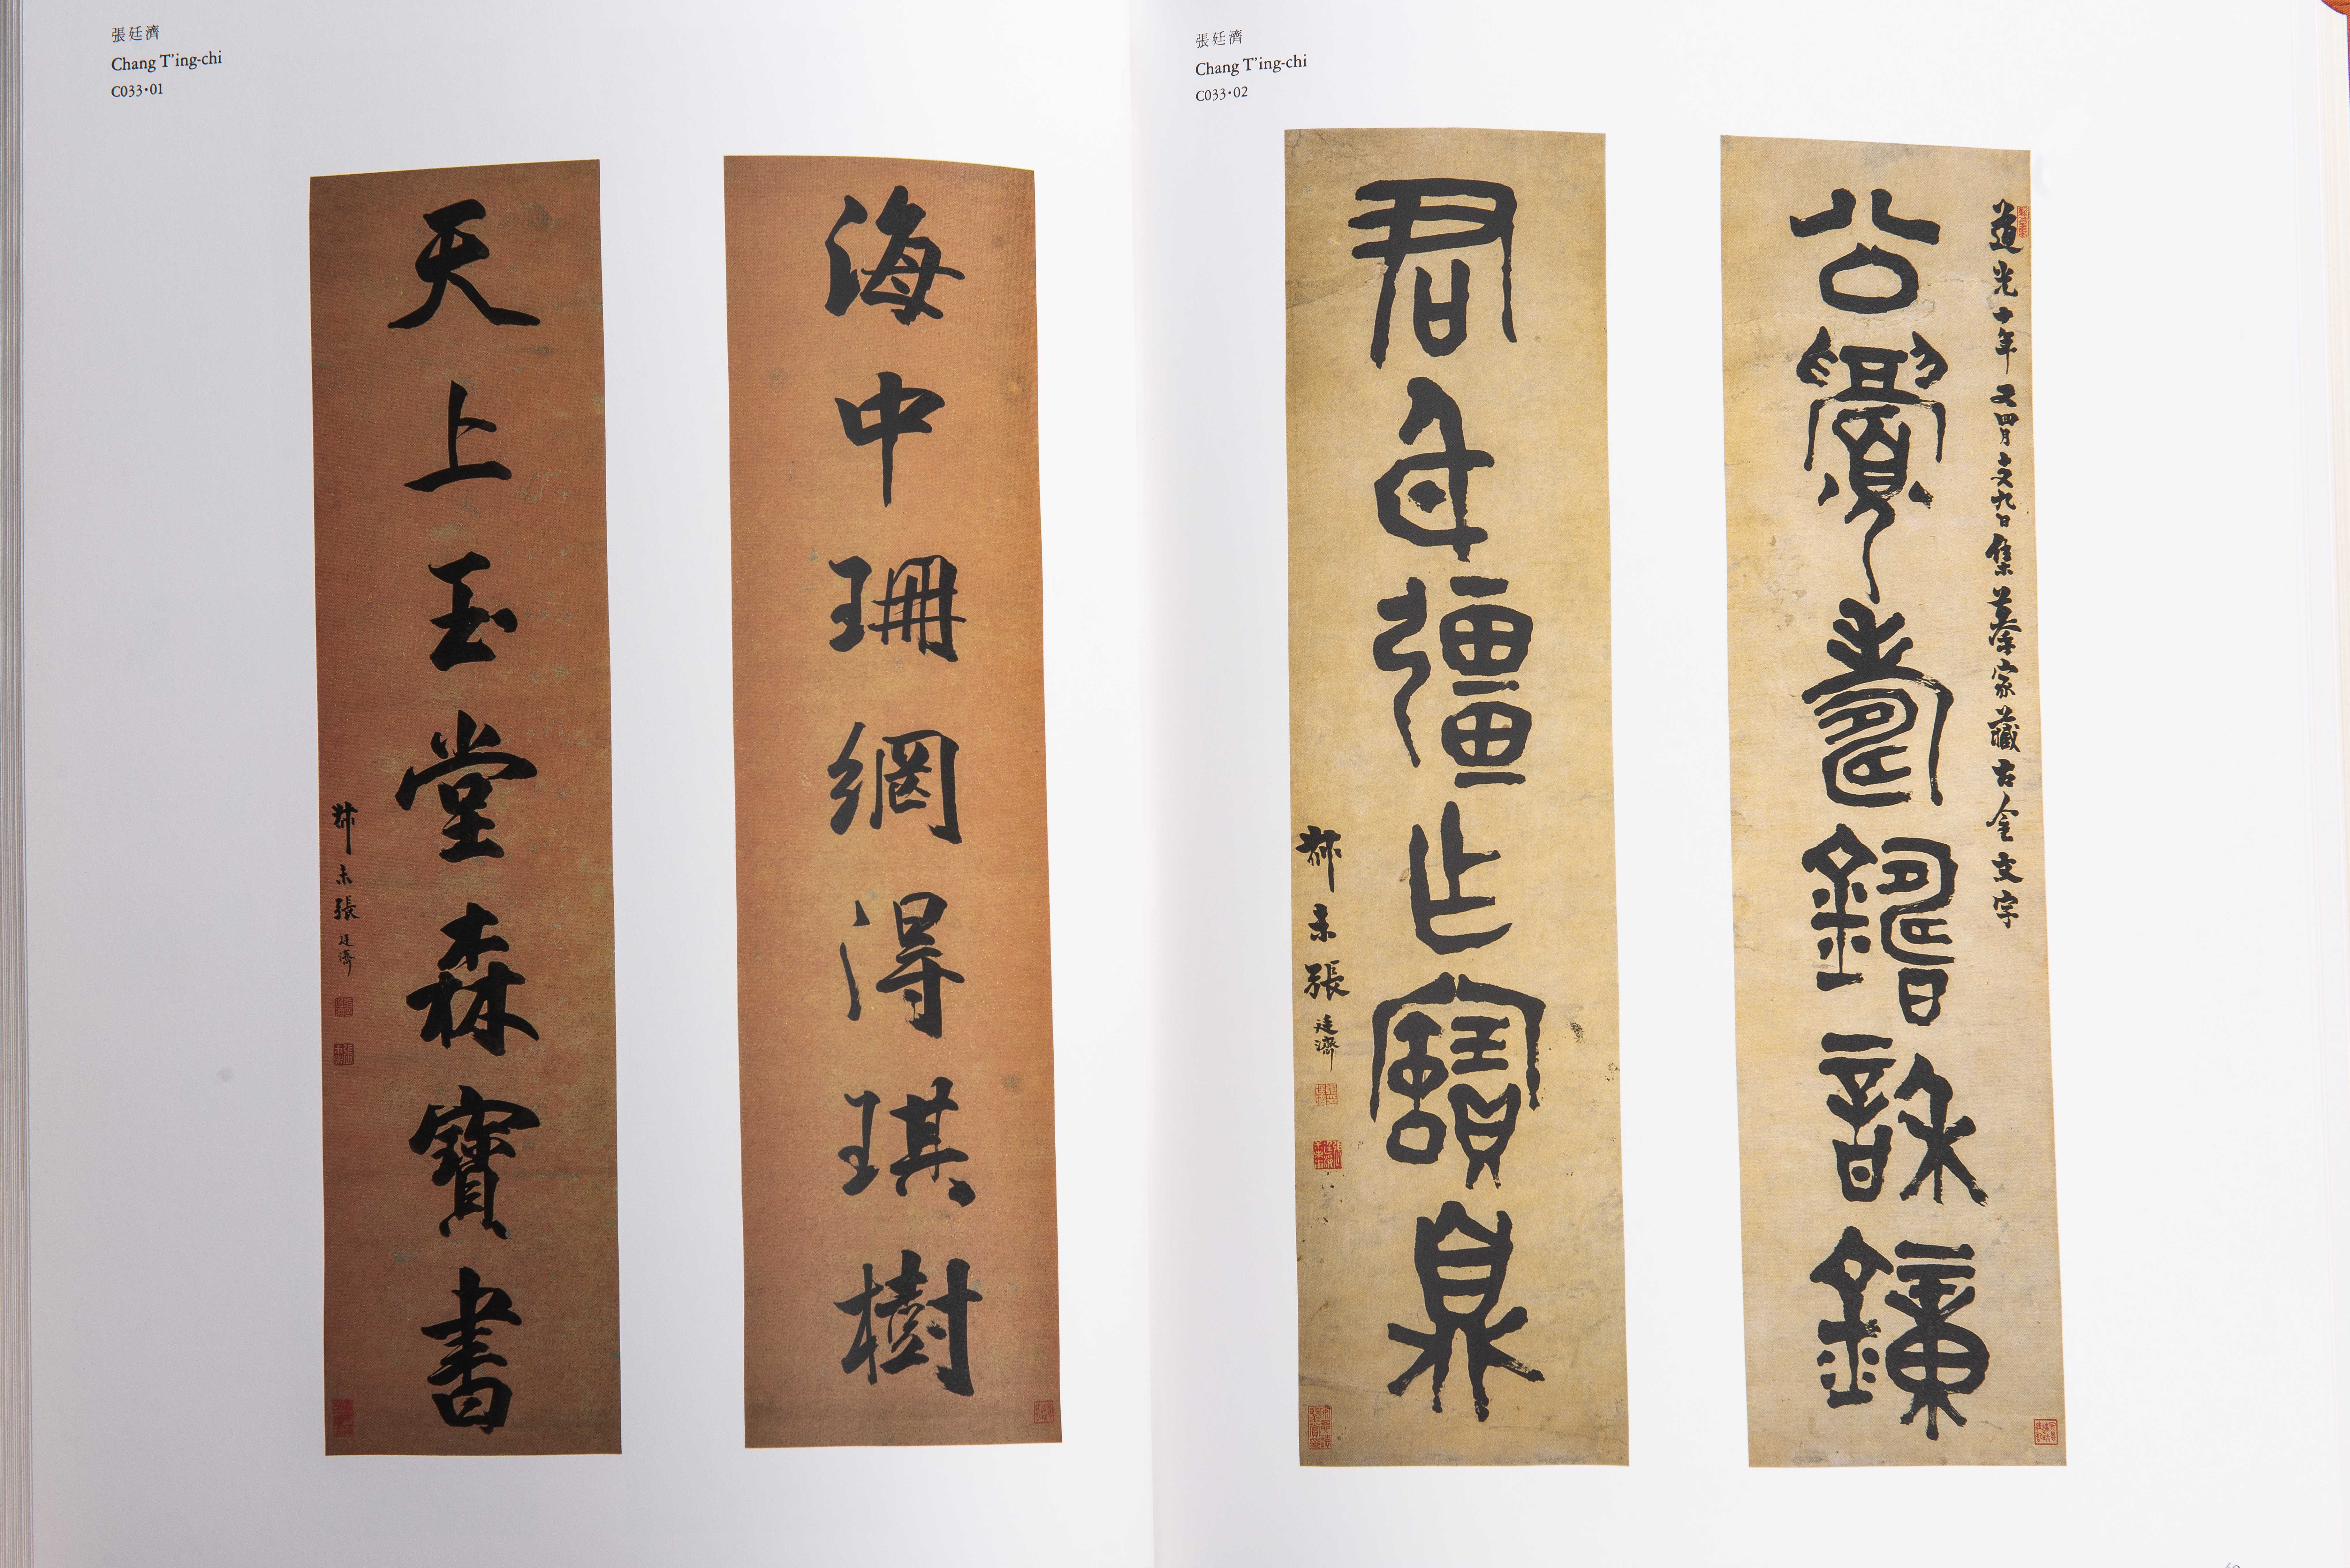 張廷濟
Chang T'ing-chi
C033·01
海中珊網得琪樹
天上玉堂森寶書
叔未張廷濟
張廷濟
Chang T'ing-chi
C033·02
道光十年又四月十又九日集摹家藏古金文字
公眉壽鐘
君彊作寶鼎
叔未張廷濟